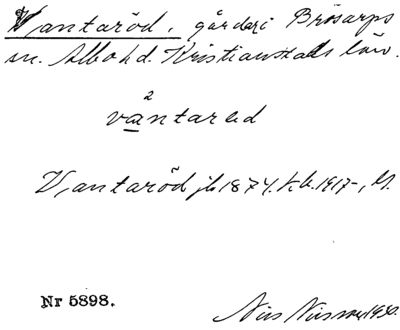 Vantaröd, gårdar i Brösarps
sn. Albo hd. Kristianstads län.
2
vantared
Vantaröd jb 1874. k.b. 1917-,
Nr 5898.
Nils Nilsson 1930.